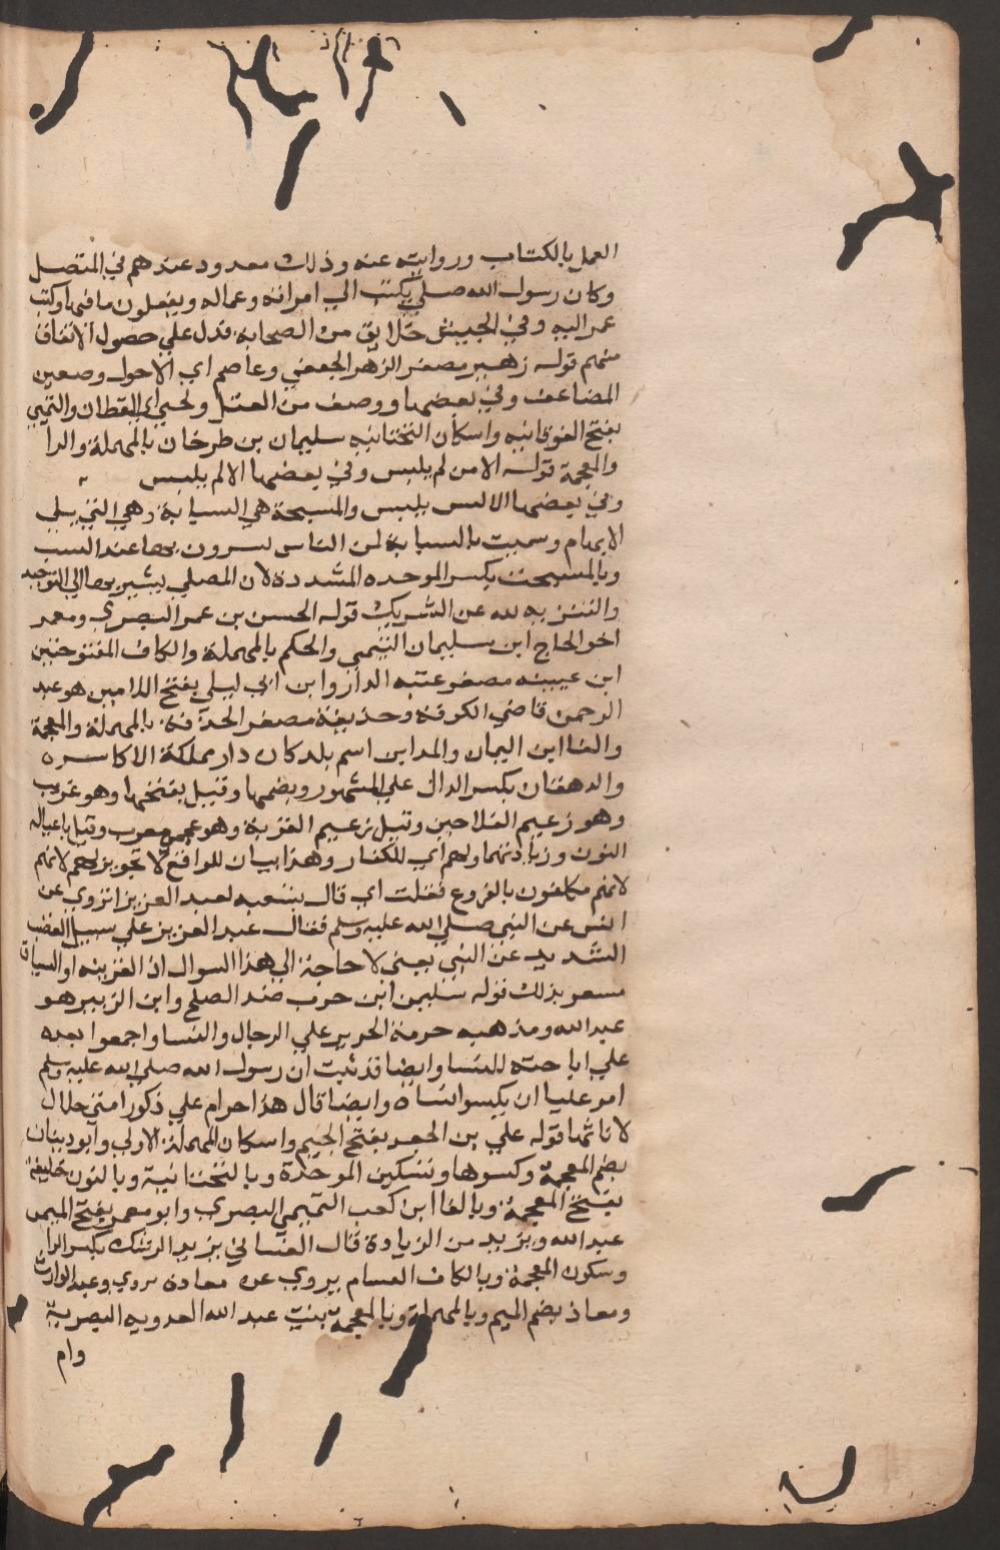 العمل بالكتاب وروايته عنه وذلك معدود عندهم في المتصل
وكان رسول الله صلي يكتب الي امرائه وعماله ويفعلون ما فيها وكتب
عمر اليه وفي الجيش خلايق من الصحابه فدل علي حصول الاتفاق
منهم قوله زهير مصغر الزهر الجعفي وعاصم اي الاحول وصعين
المضاعف وفي بعضها ووصف من ولحيي اي القطان والتيمي
بفتح الفوقانيه واسكان التحتانيه سليمان بن طرخان بالمهملة والرا
والمعجمة قوله الا من لم يلبس وفي بعضها الا لم يلبس
وفي بعضها الا ليس يلبس والمسبحة هي السبابة وهي التي يلي
الابهام وسميت بالسبابة لان الناس يسبون بها عند السب
وبالمسبحة بكسر الموحده المشددة لان المصلي يشير بها الي التوحيد
والتنزيه لله عن الشريك قوله الحسن بن عمر البصري ومعمر
اخو الحاج ابن سليمان التيمي والحكم بالمهملة والكاف المفتوحتين
ابن عيينه مصغر عتبه الدار وابن ابي ليلي بفتح اللامين هو عبد
الرحمن قاضي الكوفه وحذيفة مصغر الحذفة بالمهملة والمعجمة
والفا ابن اليمان والمداين اسم بلد كان دار مملكة الاكاسره
والدهقان بكسر الدال علي المشهور وبضمها وقيل بفتحها وهو غريب
وهو زعيم الفلاحين وقيل زعيم القرية وهو عجمي معرب وقيل باصالة
النون وزيادتها ولهم اي للكفار وهذا بيان للواقع لا تجويز لهم لانهم
لانهم مكلفون بالفروع فقلت اي قال شعبه لعبد العزيز اتروي عن
انس عن النبي صلي الله عليه وسلم فقال عبد العزيز علي سبيل الغضب
الشديد عن النبي يعني لا حاجة الي هذا السوال اذ القرينه او السياق
مسعر بذلك قوله سليمن ابن حرب ضد الصلح وابن الزبير هو
عبد الله ومذهبه حرمة الحرير علي الرجال والنسا واجمعوا بعده
علي اباحته للنسا وايضا قد ثبت ان رسول الله صلي الله عليه وسلم
امر عليا ان يكسو نساه وايضا قال هذا حرام علي ذكور امتي حلال
لاناثها قوله علي بن الجعد بفتح الجيم واسكان المهملة الاولي وابو ذبيان
بضم المعجمة وكسرها وتسكين الموحدة وبالتحتانية وبالنون خليفة
بفتح المعجمة وبالفا ابن كعب التميمي البصري وابو معمر بفتح الميمين
عبد الله ويزيد من الزيادة قال الغساني يزيد الرشك بكسر الرا
وسكون المعجمة وبالكاف القسام يروي عن معاذة يروي وعبد الوارث
ومعاذ بضم الميم وبالمهملة وبالمعجمة بنت عبد الله العدويه البصرية
وام